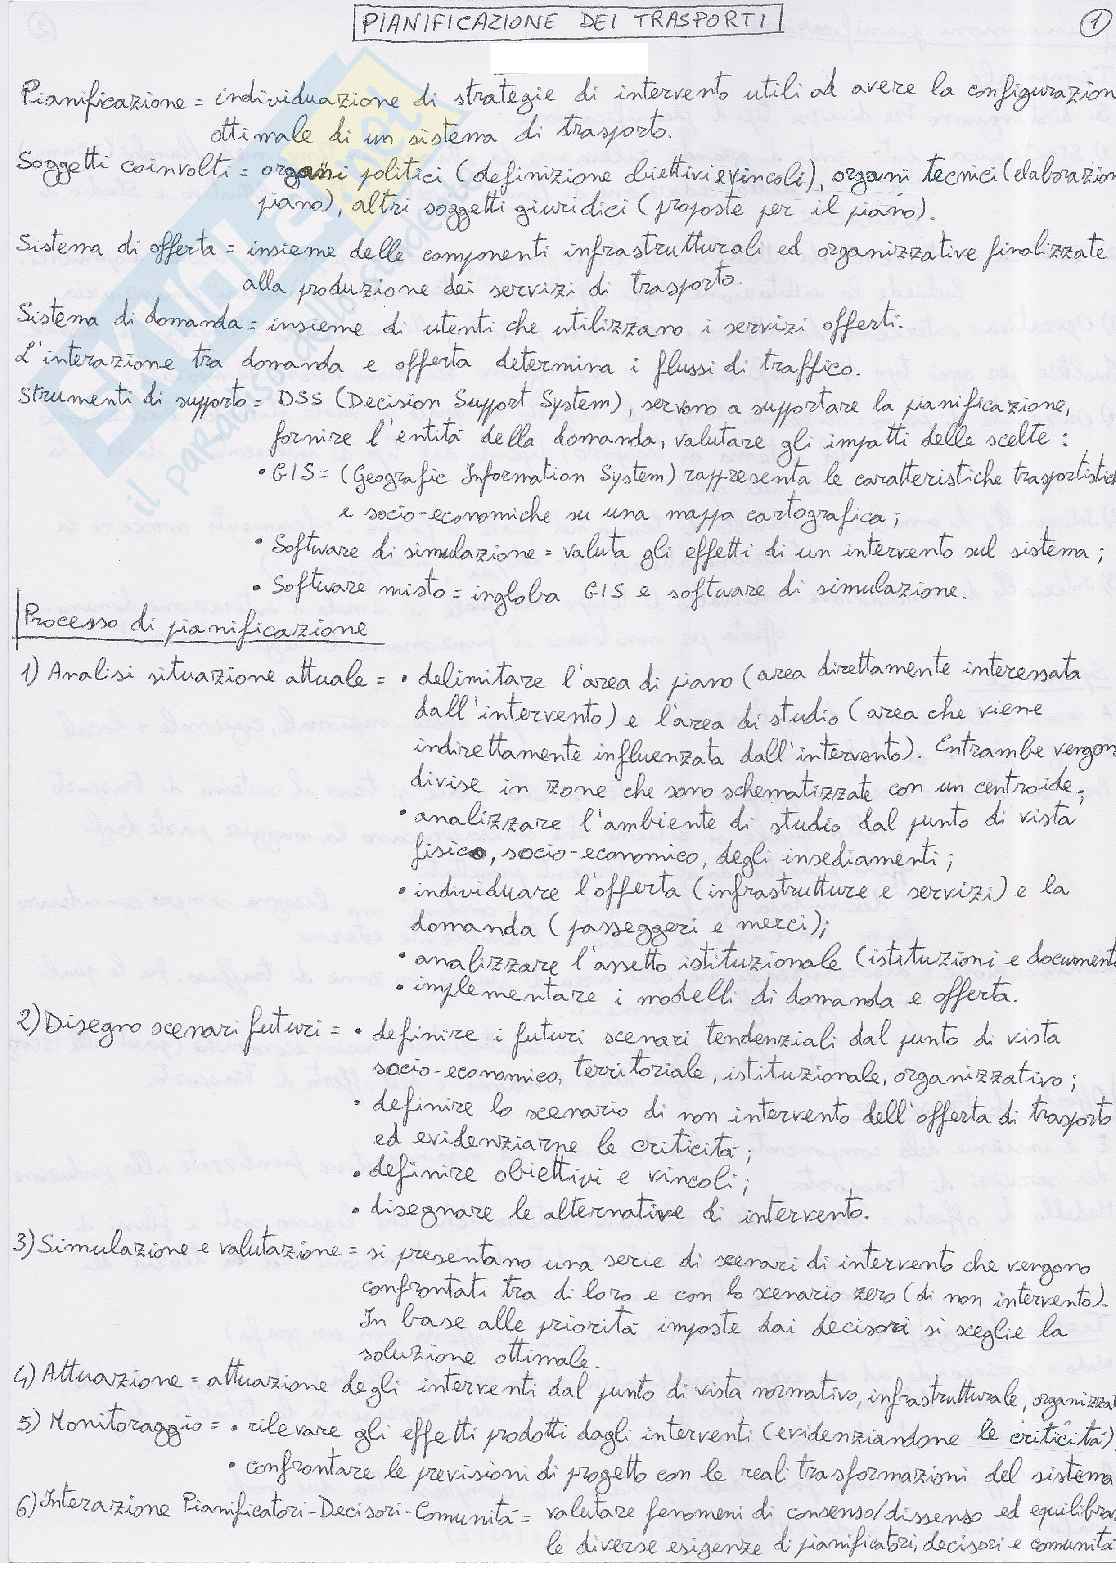 PIANIFICAZIONE DEI TRASPORTI
1
Pianificazione = individuazione di strategie di intervento utili ad avere la configurazion
ottimale di un sistema di trasporto.
Soggetti coinvolti = organi politici (definizione obiettivi e vincoli), organi tecnici (elaborazion
piano), altri soggetti giuridici (proposte per il piano).
Sistema di offerta = insieme delle componenti infrastrutturali ed organizzative finalizzate
alla produzione dei servizi di trasporto.
Sistema di domanda = insieme di utenti che utilizzano i servizi offerti.
L'interazione tra domanda e offerta determina i flussi di traffico.
Strumenti di supporto = DSS (Decision Support System), servono a supportare la pianificazione,
fornire l'entità della domanda, valutare gli impatti delle scelte :
• GIS = (Geografic Information System) rappresenta le caratteristiche trasportistich
e socio-economiche su una mappa cartografica ;
• Software di simulazione = valuta gli effetti di un intervento sul sistema ;
• Software misto = ingloba GIS e software di simulazione.
Processo di pianificazione
1) Analisi situazione attuale = • delimitare l'area di piano (area direttamente interessata
dall'intervento) e l'area di studio (area che viene
indirettamente influenzata dall'intervento). Entrambe vengon
divise in zone che sono schematizzate con un centroide ;
• analizzare l'ambiente di studio dal punto di vista
fisico, socio-economico, degli insediamenti ;
• individuare l'offerta (infrastrutture e servizi) e la
domanda (passeggeri e merci);
• analizzare l'assetto istituzionale (istituzioni e document
• implementare i modelli di domanda e offerta.
2) Disegno scenari futuri = • definire i futuri scenari tendenziali dal punto di vista
socio-economico, territoriale, istituzionale, organizzativo ;
• definire lo scenario di non intervento dell'offerta di trasporto
ed evidenziarne le criticità ;
• definire obiettivi e vincoli ;
• disegnare le alternative di intervento.
3) Simulazione e valutazione = si presentano una serie di scenari di intervento che vengono
confrontati tra di loro e con lo scenario zero (di non intervento).
In base alle priorità imposte dai decisori si sceglie la
soluzione ottimale.
4) Attuazione = attuazione degli interventi dal punto di vista normativo, infrastrutturale, organizzat
5) Monitoraggio = • rilevare gli effetti prodotti dagli interventi (evidenziandone le criticità)
• confrontare le previsioni di progetto con le reali trasformazioni del sistema
6) Interazione Pianificatori-Decisori-Comunità = valutare fenomeni di consenso/dissenso ed equilibra
le diverse esigenze di pianificatori, decisori e comunità